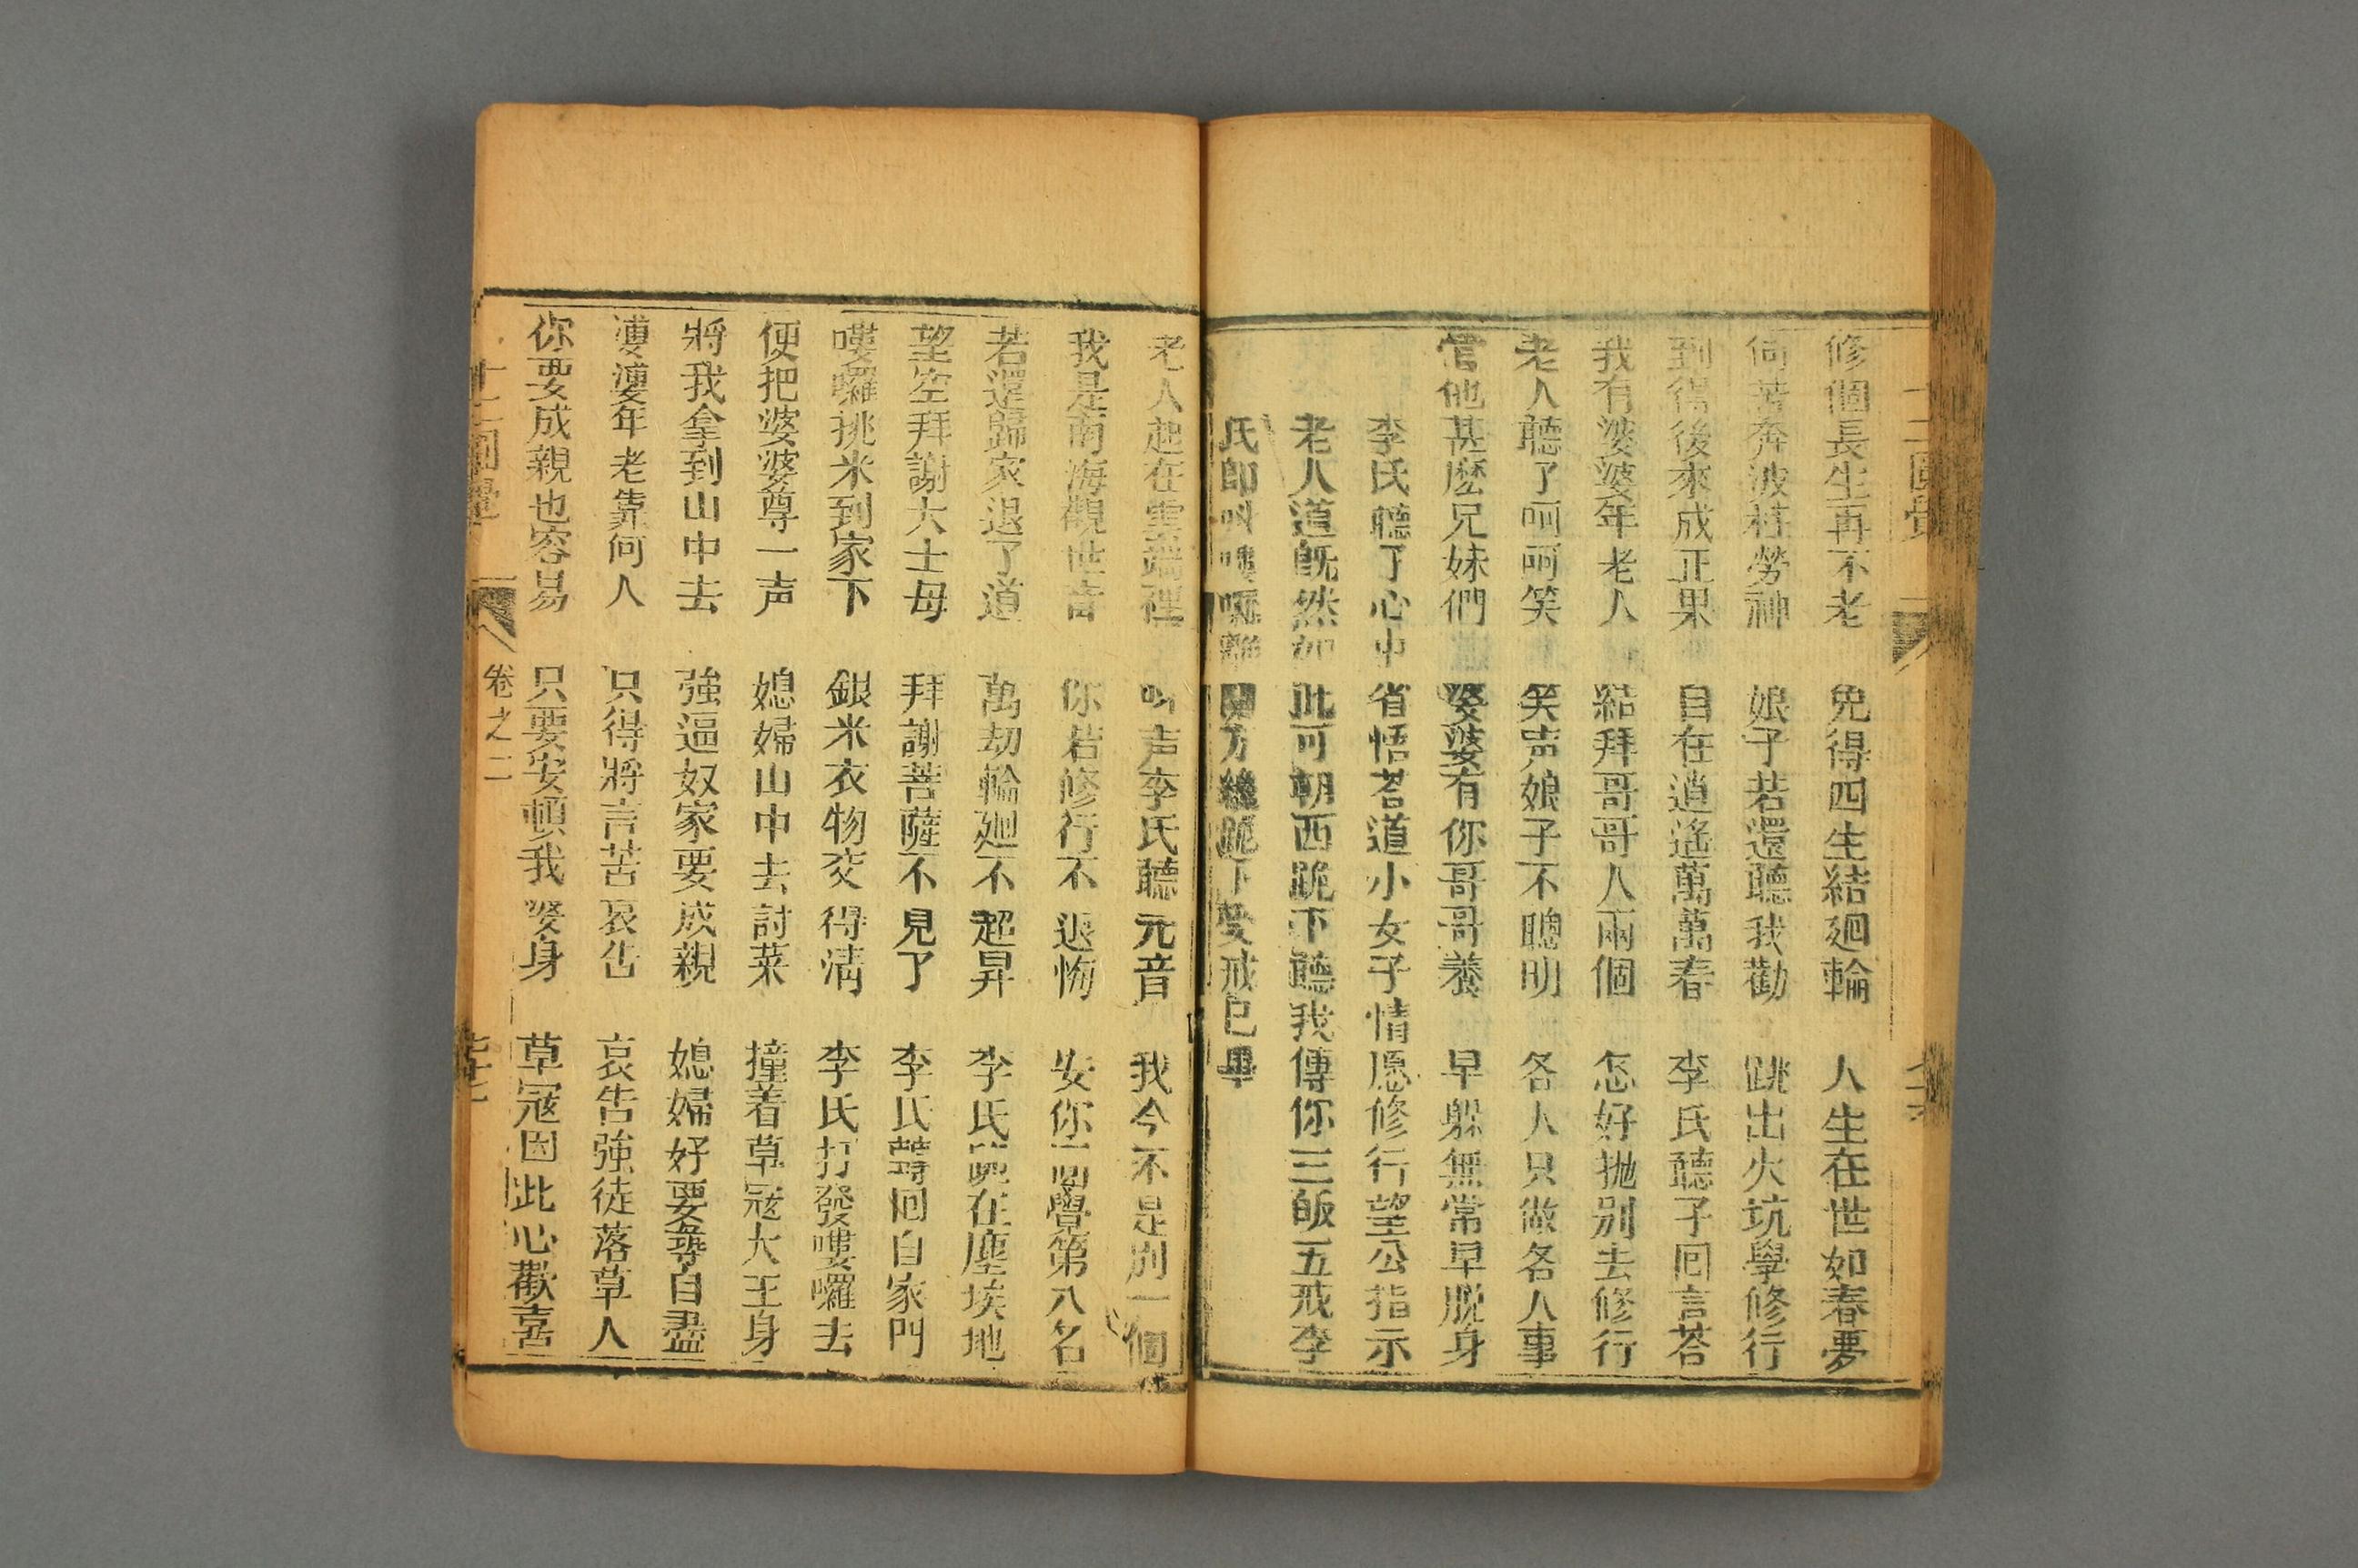 修個長生再不老 免得四生結廻輪 人生在世如春夢
何苦奔波枉勞神 娘子若還聽我勸 跳出火坑學修行
到得後來成正果 自在逍遙萬萬春 李氏聽了回言荅
我有婆婆年老人 結拜哥哥人兩個 怎好抛别去修行
老人聽了呵呵笑 笑声娘子不聰明 各人只做各人事
管他甚麽兄妹們 婆婆有你哥哥養 早躱無常早脱身
李氏聽了心中省悟荅道小女子情愿修行望公指示
老人道旣然如此可朝西跪下聽我傳你三皈五戒李
氏卽呌嘍囉離 方纔跪下受戒已畢
老人起在雲端裡 呌声李氏聽元音 我今不是别一個
我是南海觀世音 你若修行不退悔 安你圓覺第八名
若還歸家退了道 萬劫輪廻不超昇 李氏跪在塵埃地
望空拜謝大士母 拜謝菩薩不見了 李氏囘自家門
嘍囉挑米到家下 銀米衣物交得清 李氏打發嘍囉去
便把婆婆尊一声 媳婦山中去討菜 撞着草寇大王身
將我拿到山中去 強逼奴家要成親 媳婦好要尋自盡
婆婆年老靠何人 只得將言苦哀告 哀告強徒落草人
你要成親也容易 只要安頓我婆身 草寇因此心歡喜
十二圓覺
卷之二